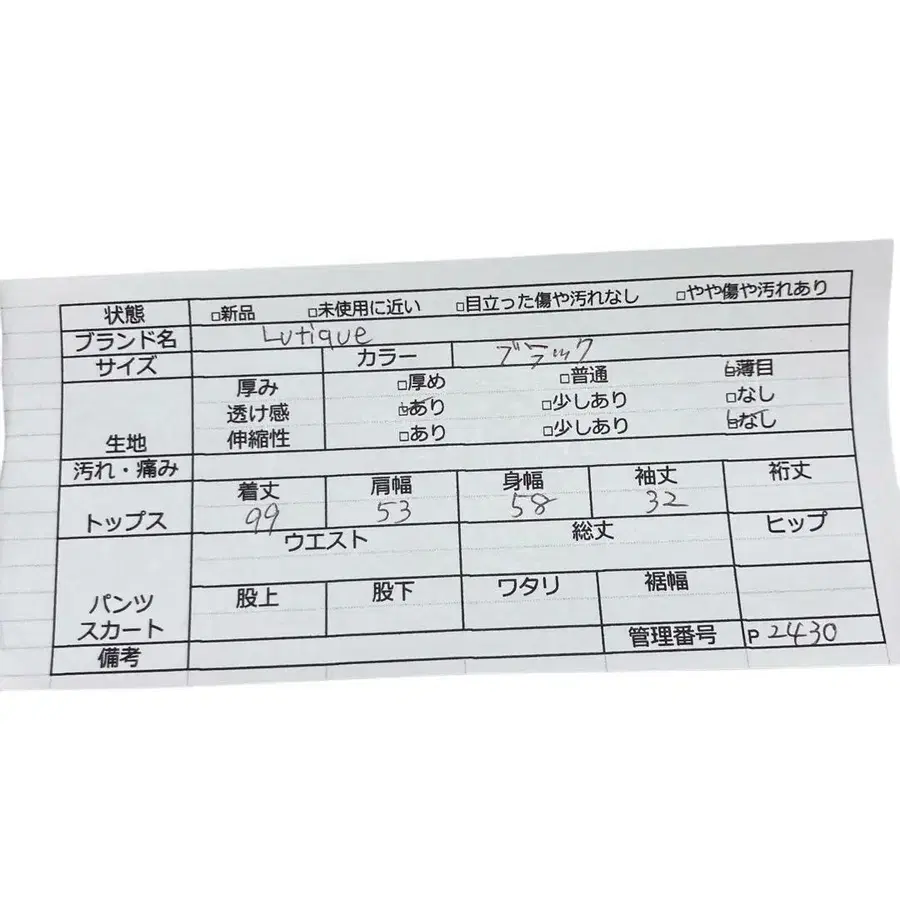 状態 □新品 □未使用に近い □目立った傷や汚れなし □やや傷や汚れあり
ブランド名 Lutique
サイズ カラー ブラック
生地 厚み □厚め □普通 ☑薄目
透け感 ☑あり □少しあり □なし
伸縮性 □あり □少しあり ☑なし
汚れ・痛み
トップス 着丈 肩幅 身幅 袖丈 裄丈
99 53 58 32
パンツ スカート ウエスト 総丈 ヒップ
股上 股下 ワタリ 裾幅
管理番号 P2430
備考